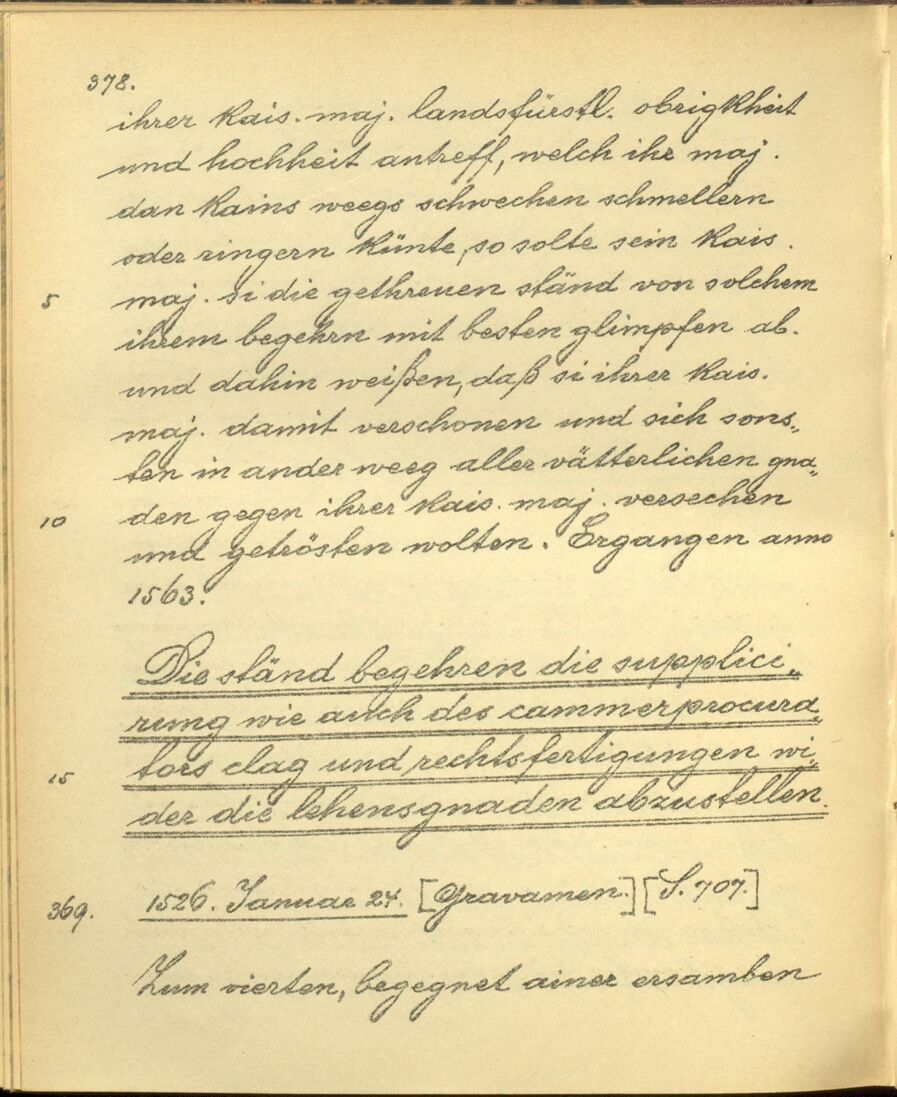 378.
ihrer kais. maj. landsfürstl. obrigkheit
und hochheit antreff, welch ihr maj.
dan kains weegs schwechen schmellern
oder ringern künte, so solte sein kais.
5 maj. si die gethreuen ständ von solchem
ihrem begehrn mit besten glimpfen ab-
und dahin weißen, daß si ihrer kais.
maj. damit verschonen und sich sons„
ten in ander weeg aller vätterlichen gna„
10 den gegen ihrer kais. maj. versechen
und getrösten wolten. Ergangen anno
1563.
Die ständ begehren die supplici„
rung wie auch des cammerprocura„
15 tors clag und rechtsfertigungen wi„
der die lehensgnaden abzustellen.
369. 1526. Januar 24. [Gravamen.] [S. 707.]
Zum vierten, begegnet ainer ersamben